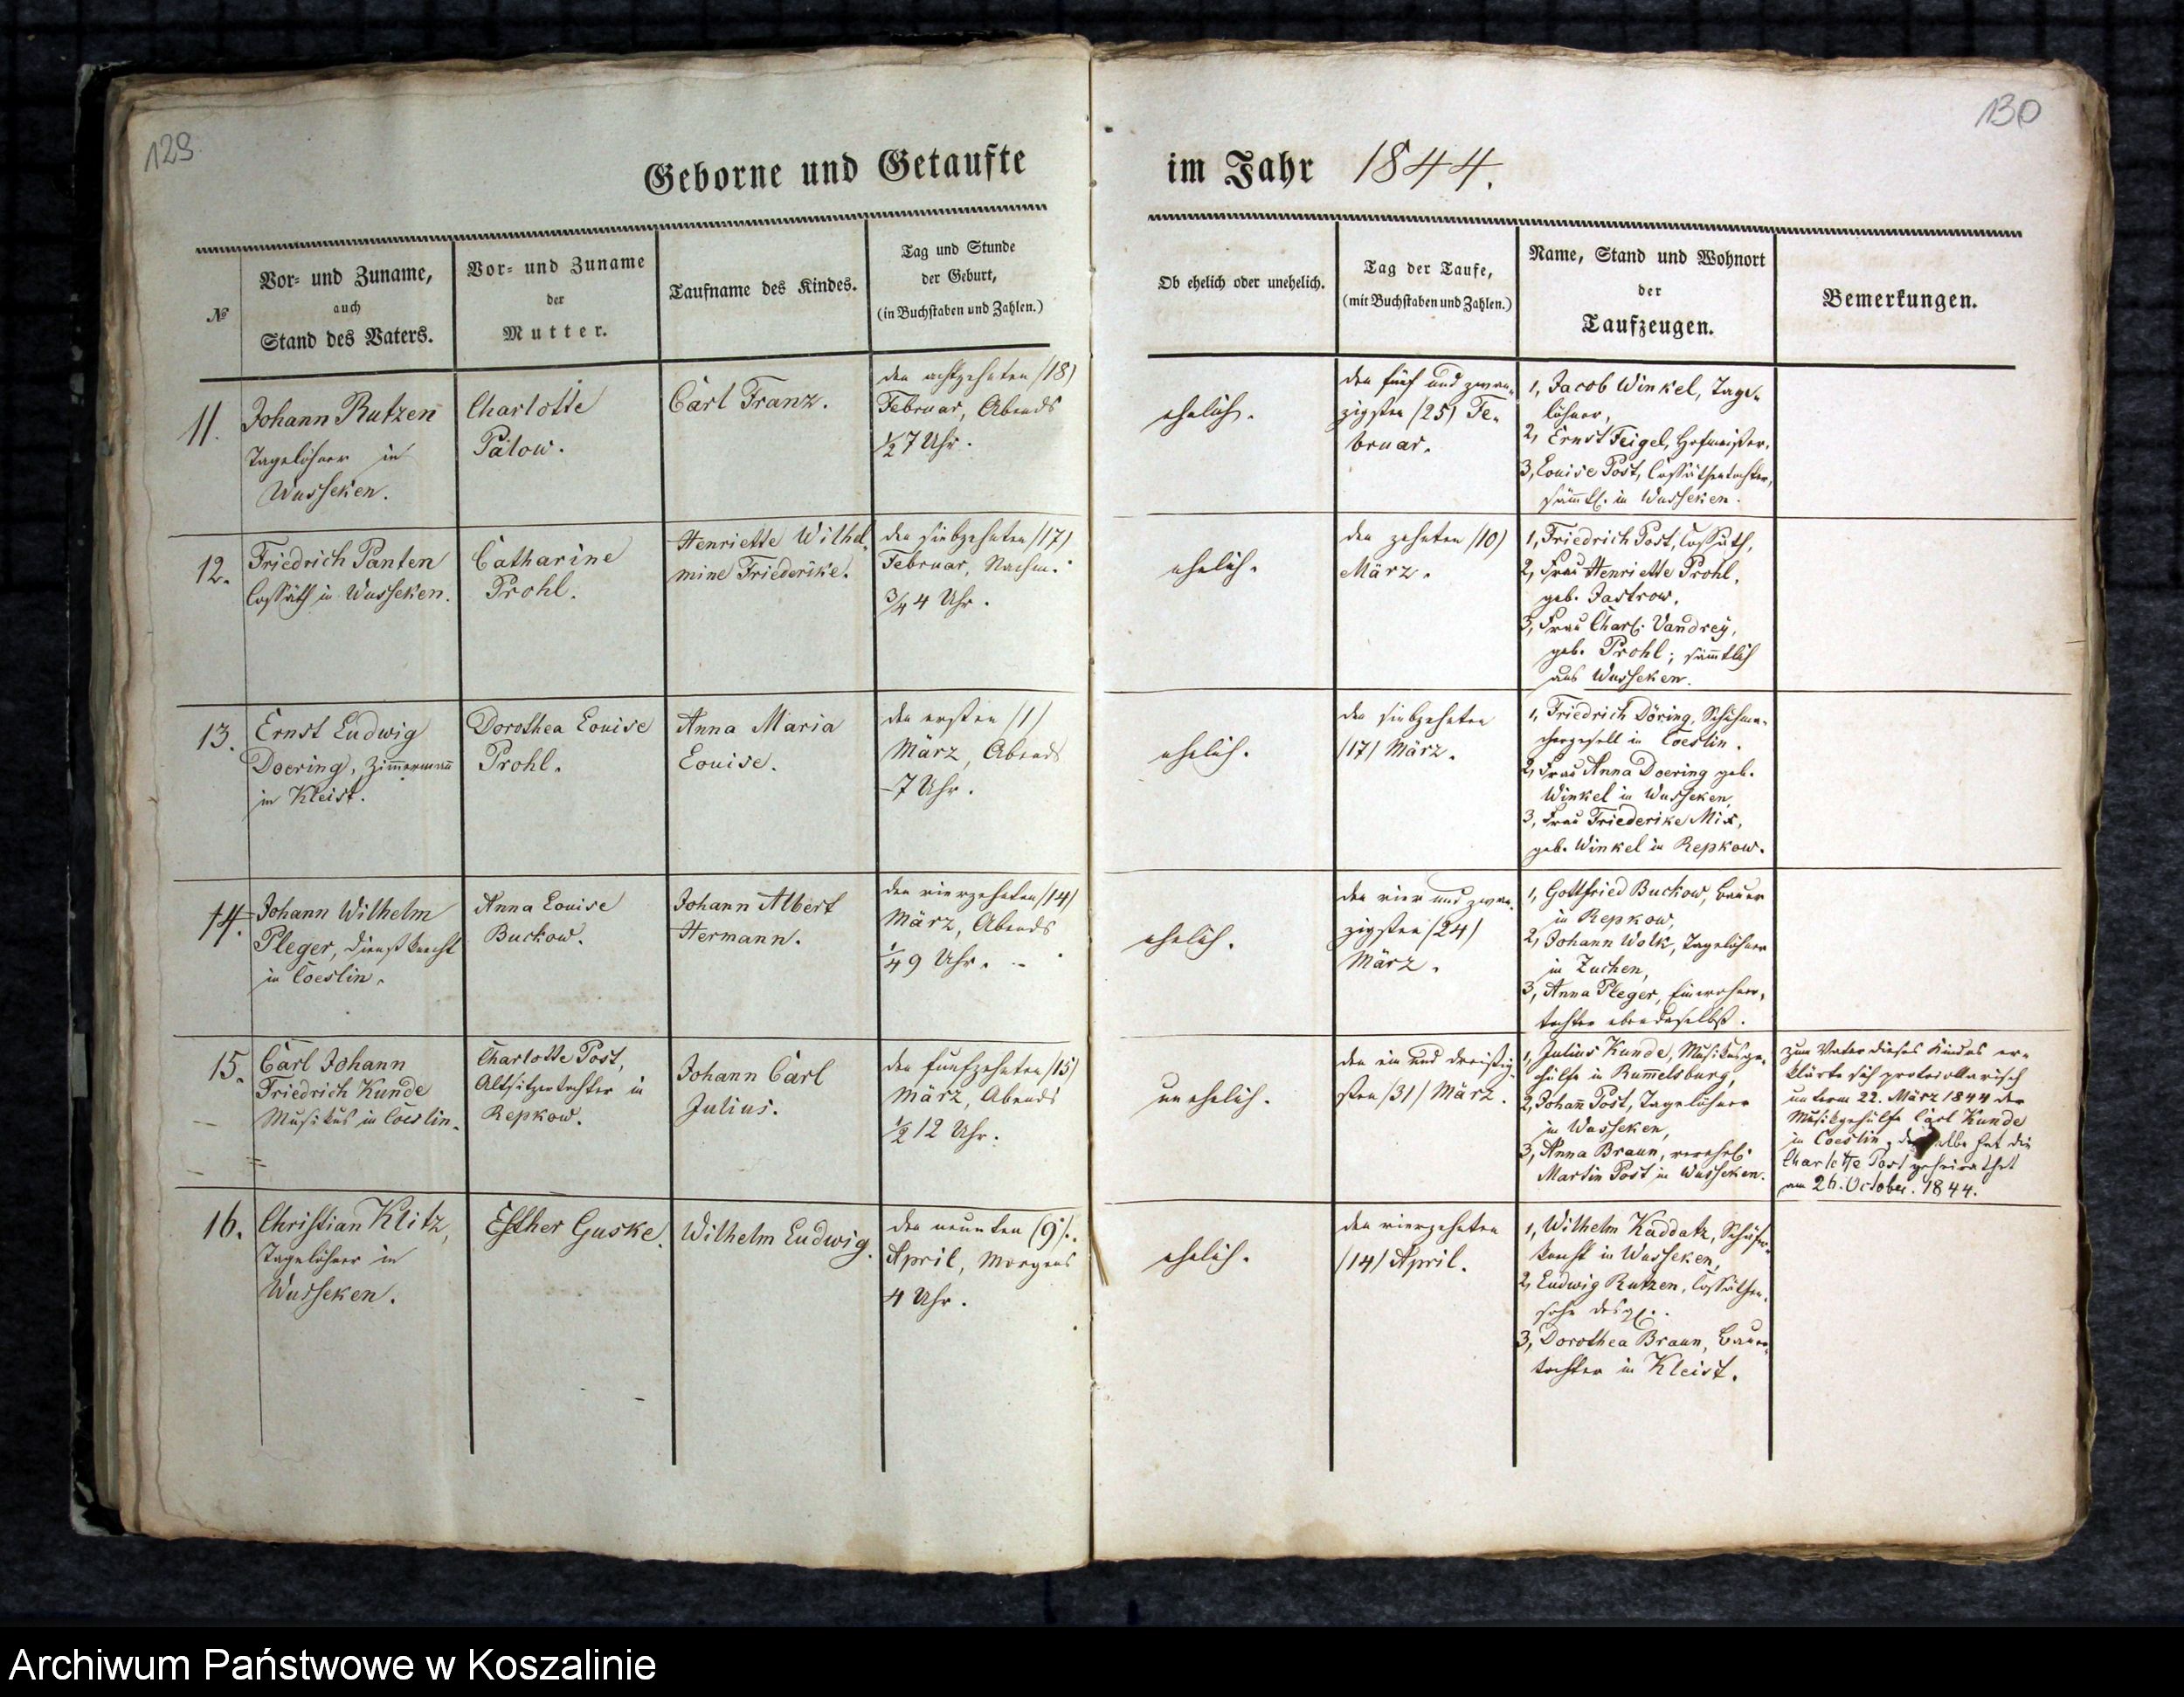 129.
Geborne und Getaufte
№
Vor- und Zuname,
auch
Stand des Vaters.
Vor- und Zuname
der
Mutter.
Taufname des Kindes.
Tag und Stunde
der Geburt,
(in Buchstaben und Zahlen.)
11.
Johann Rutzen
Tagelöhner in
Wusseken.
Charlotte
Palow.
Carl Franz.
den achtzehnten /18/
Februar, Abends
½7 Uhr.
12.
Friedrich Panten
Cossäth in Wusseken.
Catharine
Prohl.
Henriette Wilhel-
mine Friederike.
den siebzehnten /17/
Februar, Nachm.
¾4 Uhr.
13.
Ernst Ludwig
Doering, Zimmermann
in Kleist.
Dorothea Louise
Prohl.
Anna Maria
Louise.
den ersten /1/
März, Abends
7 Uhr.
14.
Johann Wilhelm
Pleger, Dienstknecht
in Coeslin.
Anna Louise
Buckow.
Johann Albert
Hermann.
den vierzehnten /14/
März, Abends
¼9 Uhr.
15.
Carl Johann
Friedrich Kunde
Musikus in Coeslin.
Charlotte Post,
Altsitzertochter in
Repkow.
Johann Carl
Julius.
den funfzehnten /15/
März, Abends
½12 Uhr.
16.
Christian Klitz,
Tagelöhner in
Wusseken.
Esther Guske.
Wilhelm Ludwig.
den neunten (9).
April, Morgens
4 Uhr.
130
im Jahr 1844.
Ob ehelich oder unehelich.
Tag der Taufe,
(mit Buchstaben und Zahlen.)
Name, Stand und Wohnort
der
Taufzeugen.
Bemerkungen.
ehelich.
den fünf und zwan-
zigsten /25/ Fe-
bruar.
1, Jacob Winkel, Tage-
löhner,
2, Ernst Feigel, Hofmeister,
3, Louise Post, Cossäthentochter,
sämmtl. in Wusseken.
ehelich.
den zehnten /10/
März.
1, Friedrich Post, Cossäth,
2, Frau Henriette Prohl,
geb. Jastrow,
3, Frau Charl. Vandrey,
geb. Prohl; sämmtlich
aus Wusseken.
ehelich.
den siebzehnten
/17/ März.
1, Friedrich Döring, Schuhma-
chergesell in Coeslin.
2, Frau Anna Doering geb.
Winkel in Wusseken,
3, Frau Friederike Mix,
geb. Winkel in Repkow.
ehelich.
den vier und zwan-
zigsten /24/
März.
1, Gottfried Buckow, Bauer
in Repkow,
2, Johann Wolk, Tagelöhner
in Zuchen,
3, Anna Pleger, Einwohner-
tochter ebendaselbst.
unehelich.
den ein und dreißig-
sten /31/ März.
1, Julius Kunde, Musikusge-
hülfe in Rummelsburg,
2, Johann Post, Tagelöhner
in Wusseken,
3, Anna Braun, verehel.
Martin Post in Wusseken.
Zum Vater dieses Kindes er-
klärte sich protocollarisch
unterm 22. März 1844 der
Musikgehülfe Carl Kunde
in Coeslin, derselbe hat die
Charlotte Post geheirathet
am 26. October. 1844.
ehelich.
den vierzehnten
/14/ April.
1, Wilhelm Kaddatz, Schäfer-
knecht in Wusseken,
2, Ludwig Rutzen, Cossäthen-
sohn desgl.
3, Dorothea Braun, Bauer-
tochter in Kleist.
Archiwum Państwowe w Koszalinie